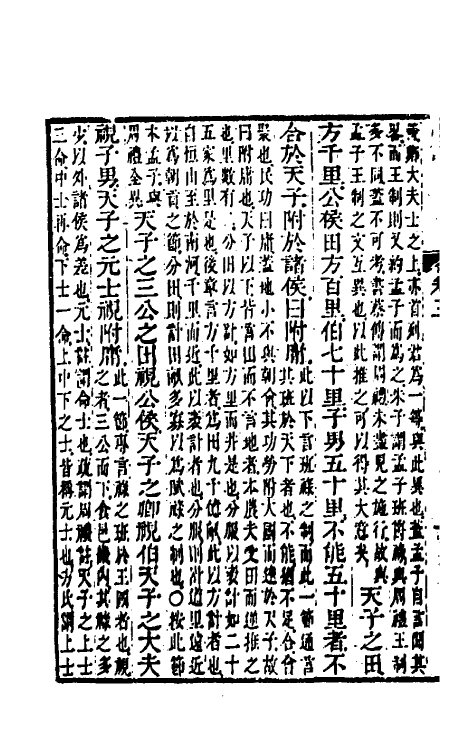 爵大夫士之上亦首列君爲一等與此異也蓋孟子自言聞其
畧而王制則又約孟子而爲之朱子謂孟子班爵祿與周禮王制
多不同蓋不可考蔡傳謂周禮未盡見之施行故與
孟子王制之文互異也以此推之可以得其大意矣
天子之田
方千里公侯田方百里伯七十里子男五十里不能五十里者不
合於天子附於諸侯曰附庸
此以下言班祿之制而此一節通言
其班於天下者也不能猶不足合會
聚也民功曰庸蓋地小不與朝會其功勞附大國而達於天子故
曰附庸也天子以下皆言田而不言地者本農夫受田而遞推之
也里數有二分田以方計如方里而井是也分服以袤計如二十
五家爲里是也後章言方千里者爲田九十億畝此以方計者也
自恒山至於南河千里而近此以袤計者也分服則計道里遠近
以爲朝貢之節分田則計田畝多寡以爲賦祿之制也○按此節
本孟子與
周禮全異
天子之三公之田視公侯天子之卿視伯天子之大夫
視子男天子之元士視附庸
此一節專言祿之班於王國者也視
之者三公而下食邑畿內其祿之多
少以外諸侯爲差也元士註謂命士也疏謂周禮註天子之上士
三命中士再命下士一命上中下之士皆稱元士也方氏謂上士